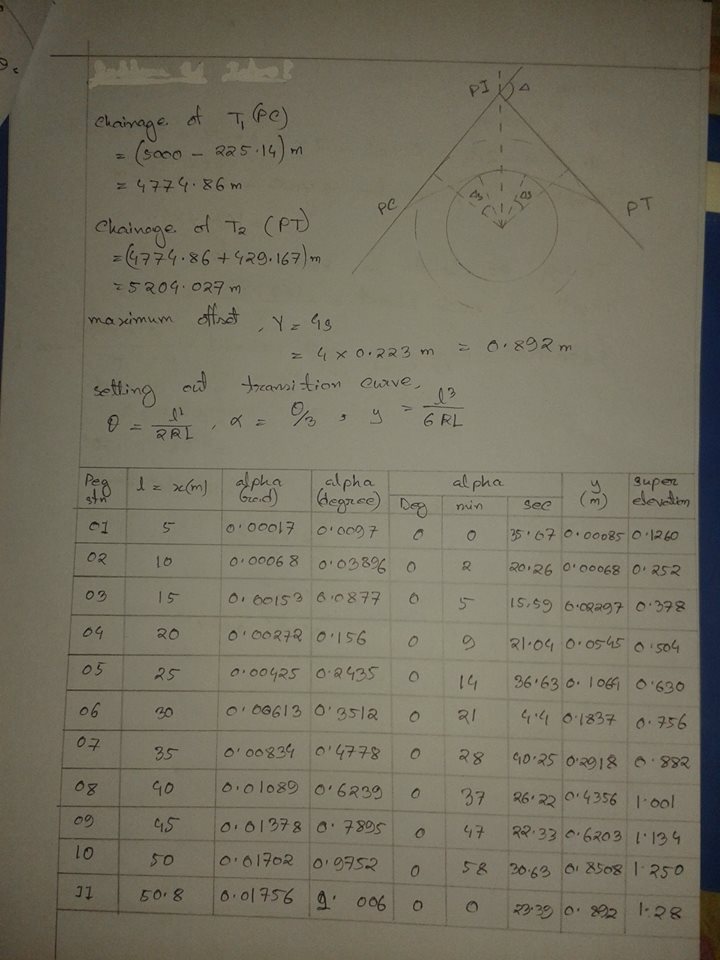 Chainage of T1 (PC)
= (5000 - 225.14) m
= 4774.86 m
Chainage of T2 (PT)
= (4774.86 + 429.167) m
= 5204.027 m
maximum offset, Y = 4s
= 4 × 0.223 m = 0.892 m
setting out transition curve,
θ = l²/2RL , α = θ/3 , y = l³/6RL
PI Δ
PC Δs Δs PT
Peg stn | l = x(m) | alpha (rad) | alpha (degree) | alpha Deg | min | sec | y (m) | super elevation
01 | 5 | 0.00017 | 0.0097 | 0 | 0 | 35.07 | 0.00085 | 0.1260
02 | 10 | 0.00068 | 0.03896 | 0 | 2 | 20.26 | 0.00068 | 0.252
03 | 15 | 0.00153 | 0.0877 | 0 | 5 | 15.59 | 0.02297 | 0.378
04 | 20 | 0.00272 | 0.156 | 0 | 9 | 21.04 | 0.0545 | 0.504
05 | 25 | 0.00425 | 0.2435 | 0 | 14 | 36.63 | 0.1064 | 0.630
06 | 30 | 0.00613 | 0.3512 | 0 | 21 | 4.4 | 0.1837 | 0.756
07 | 35 | 0.00834 | 0.4778 | 0 | 28 | 40.25 | 0.2918 | 0.882
08 | 40 | 0.01089 | 0.6239 | 0 | 37 | 26.22 | 0.4356 | 1.001
09 | 45 | 0.01378 | 0.7895 | 0 | 47 | 22.33 | 0.6203 | 1.134
10 | 50 | 0.01702 | 0.9752 | 0 | 58 | 30.63 | 0.8508 | 1.250
11 | 50.8 | 0.01756 | 1.006 | 0 | 0 | 23.39 | 0.892 | 1.28